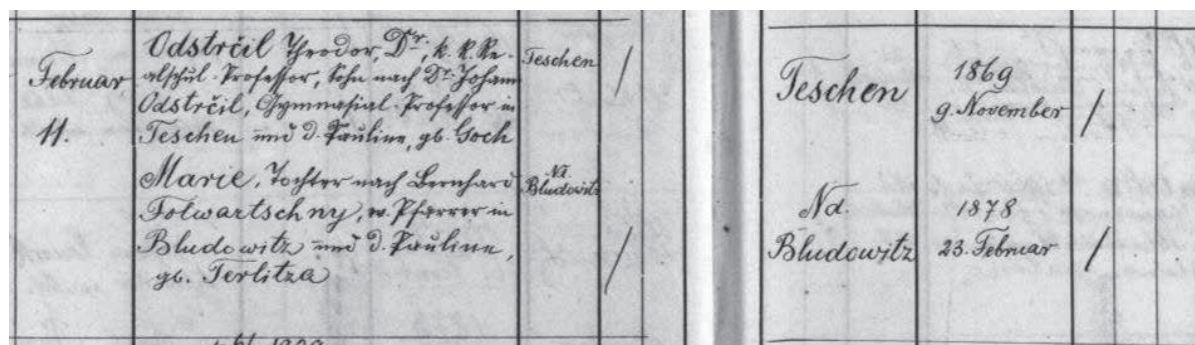 Februar
11.
Odstrčil Theodor, Dr., k. k. Re-
alschul-Professor, Sohn nach Dr. Johann
Odstrčil, Gymnasial-Professor in
Teschen und d. Pauline, gb. Goch
Teschen
Marie, Tochter nach Bernhard
Folwartschny, ev. Pfarrer in
Bludowitz und d. Pauline,
gb. Terlitza
Nd.
Bludowitz
Teschen
1869
9. November
Nd.
Bludowitz
1878
23. Februar